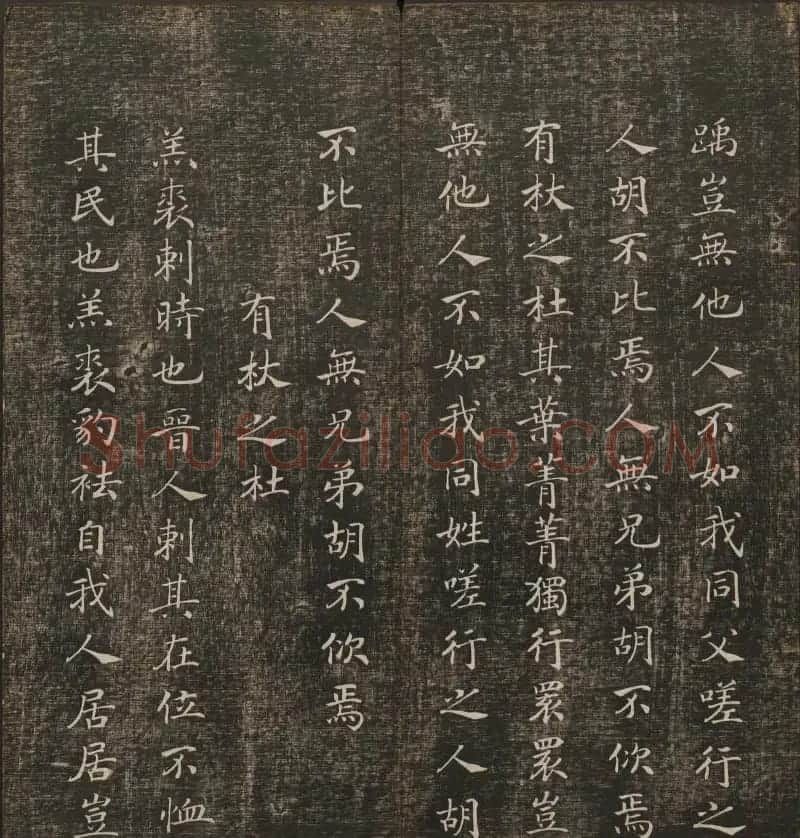 踽豈無他人不如我同父嗟行之
人胡不比焉人無兄弟胡不佽焉
有杕之杜其葉菁菁獨行睘睘豈
無他人不如我同姓嗟行之人胡
不比焉人無兄弟胡不佽焉
有杕之杜
羔裘刺時也晉人刺其在位不恤
其民也羔裘豹袪自我人居居豈
Shufazilido.COM